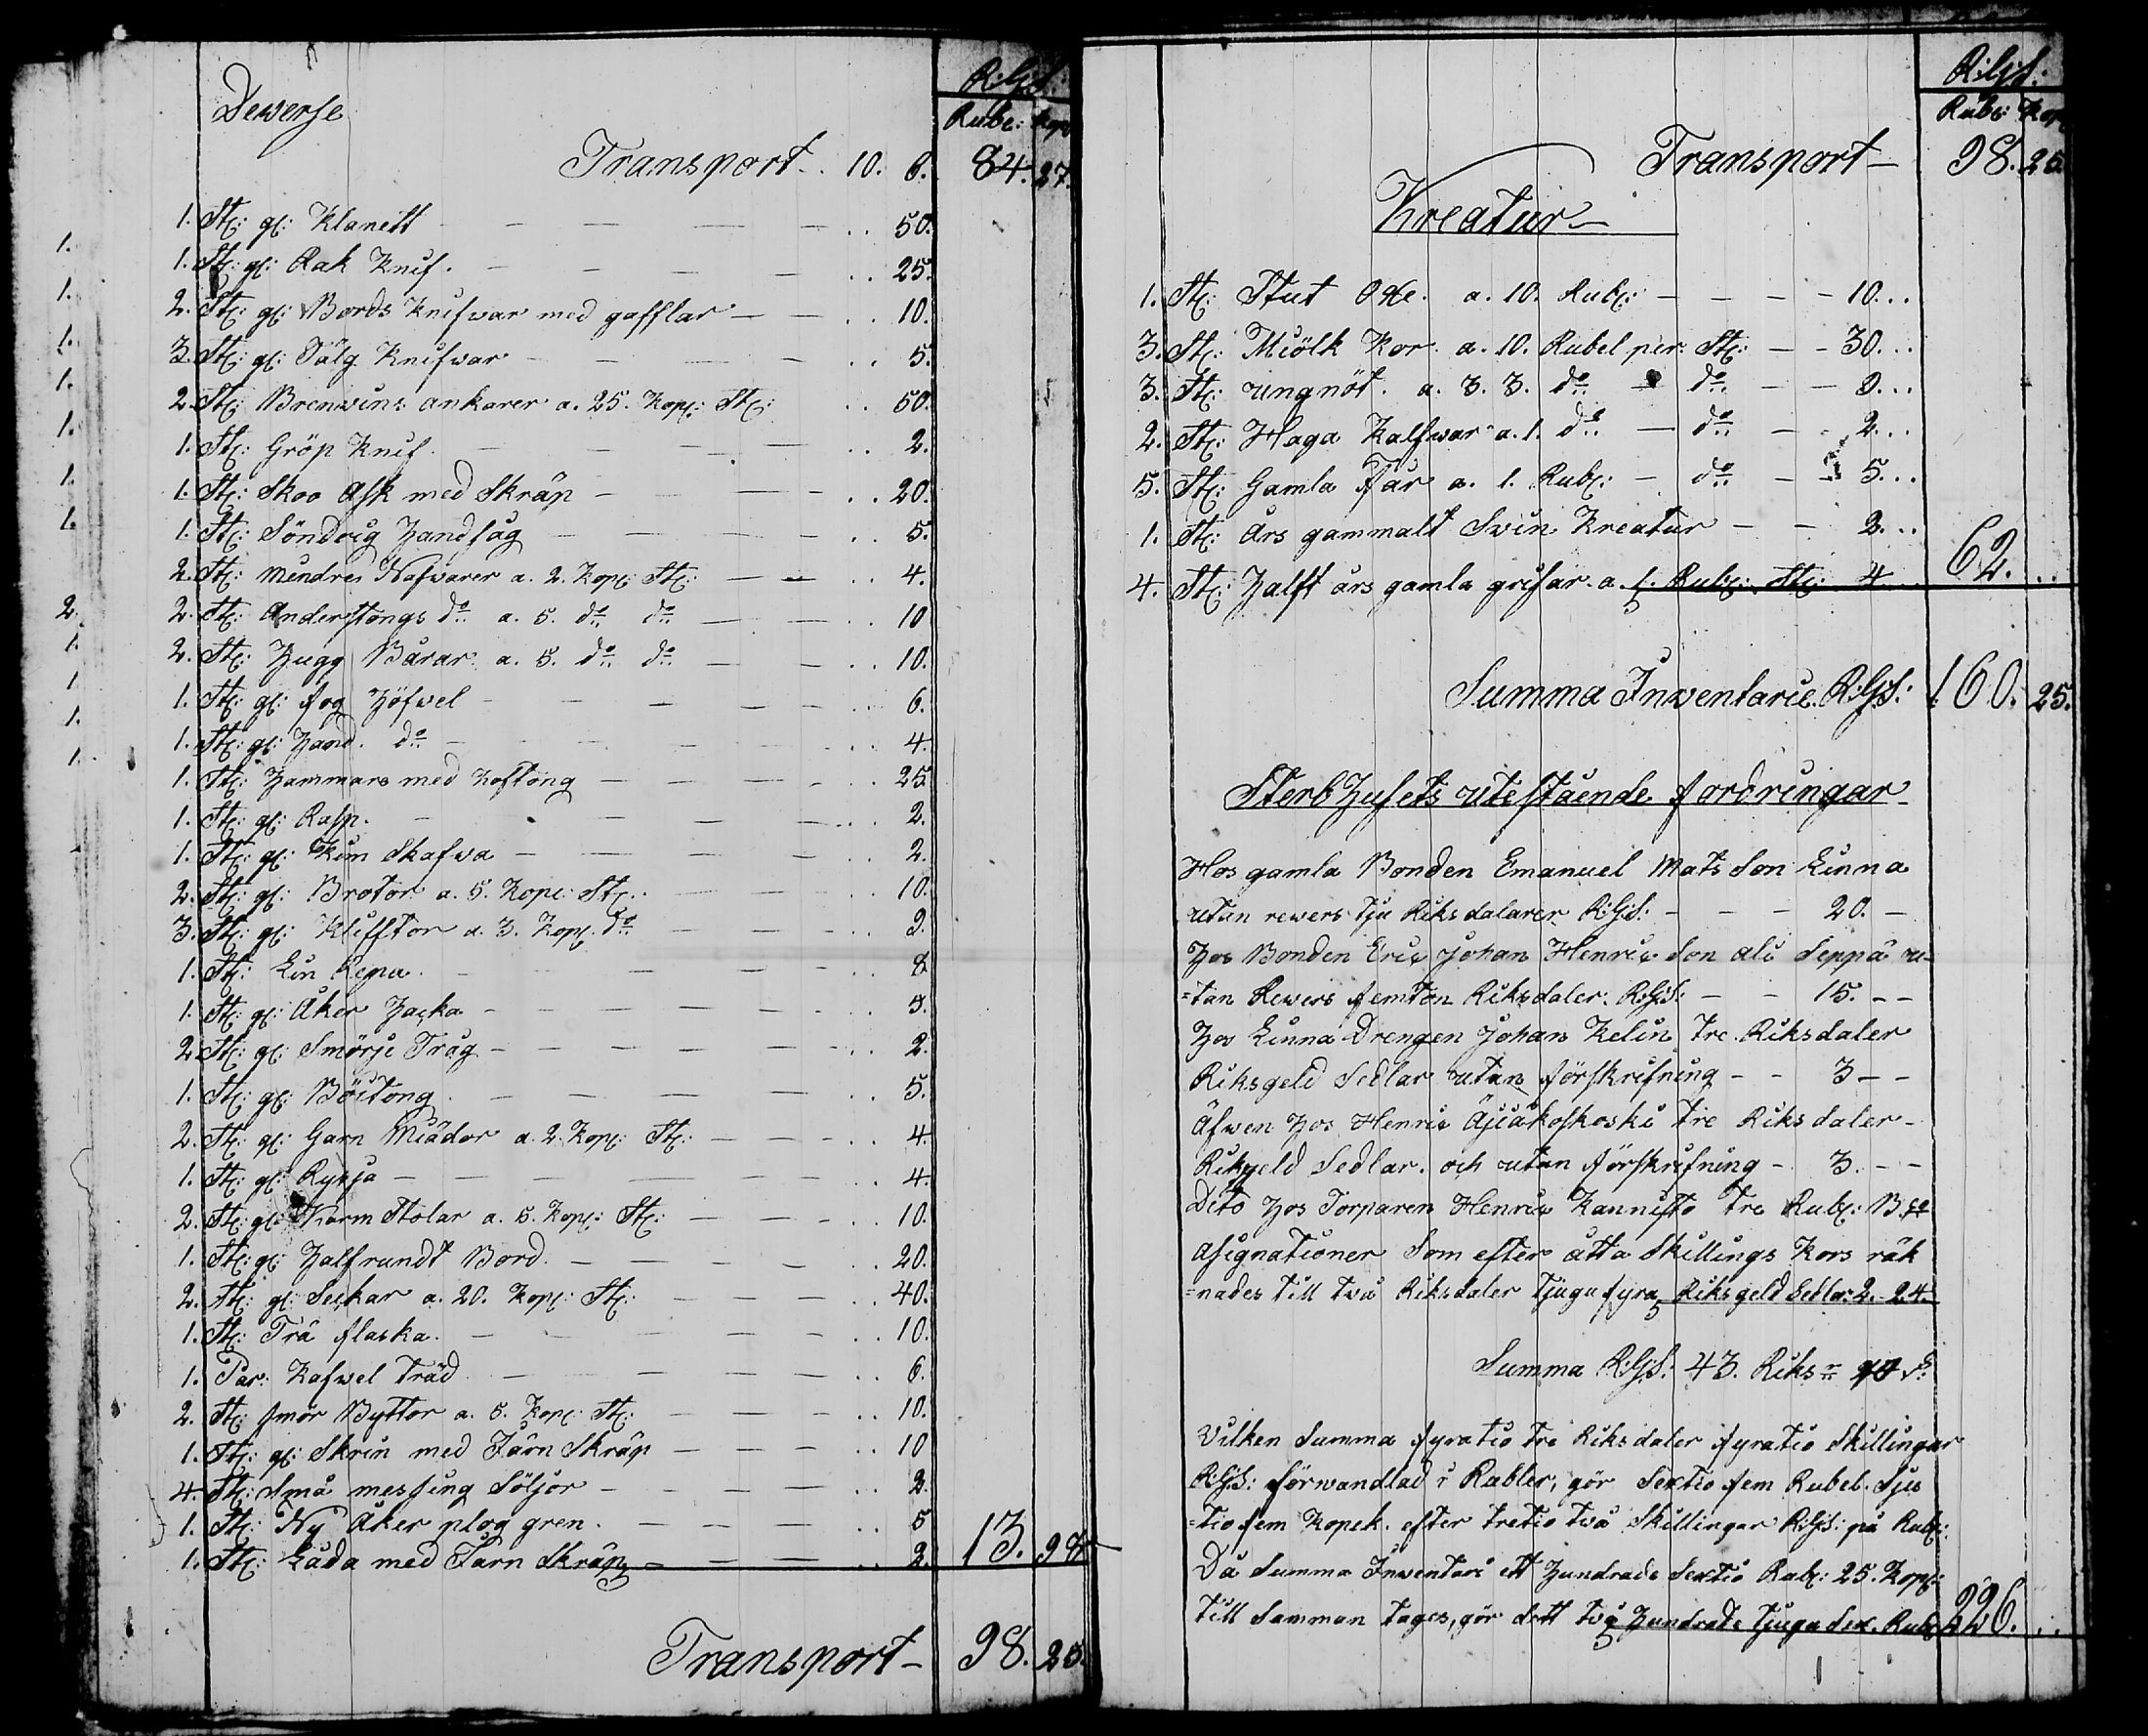 R:G:S:
Dewerse
Rube: Kop:
Transport . . 10. 6. 84. 27.
1. St: gl: Klanett — — — — . . 50.
1. St: gl: Rak Knif. — — — — . . 25.
2. St: gl: Bords Knifwar med gafflar — — . . 10.
3. St: gl: Tälg Knifwar — — — . . 5.
2. St: Brenwins ankarer a. 25. Kop: St: . . 50.
1. St: Gröp Knif. — — — . . 2.
1. St: Skoo Ask med Skräp — — — . . 20.
1. St: Söndrig Handsåg — — — . . 5.
2. St: mindre Nafwarer a. 2. Kop: St: — — . . 4.
2. St: Anderstongs do a. 5. do do — — . . 10
2. St: Hugg Bårar a. 5. do do — — . . 10.
1. St: gl: fog Höfwel — — — — . . 6.
1. St: gl: Hand. do — — — . . 4.
1. St: Hammare med Hoftong — — — — . . 25
1. St: gl: Rasp. — — — . . 2.
1. St: gl: Kim Skafwa — — — — . . 2.
2. St: gl: Brotor a. 5. Kop: St: — — . . 10.
3. St: gl: Kliffton a. 3. Kop: do — — — . . 9.
1. St: Lin Repa. — — — — . . 8
1. St: gl: Åker Hacka — — — — — . . 5.
2. St: gl: Smörje Tråg — — — — — . . 2.
1. St: gl: Böitong. — — — — . . 5.
2. St: gl: Garn Miädor a. 2. Kop: St: — — — . . 4.
1. St: gl: Rysja — — — — — . . 4.
2. St: gl: Karm Stolar a. 5. Kop: St: — — — . . 10.
1. St: gl: Halfrundt Bord. — — — — . . 20.
2. St: gl: Seckar a. 20. Kop: St: — — — . . 40.
1. St: Trä flaska. — — — — . . 10.
1. Par: Kafwel träd — — — — . . 6.
2. St: smör Byttor a. 5. Kop: St: — — — . . 10.
1. St: gl: Skrin med Järn Skräp — — — . . 10
4. St: Små messing Söljor — — — — . . 2.
1. St: Ny Åker plog gren. — — — . . 5
1. St: Låda med Järn Skräp — — — — . . 2. 13. 98
Transport — 98. 25.
R:G:S:
Rube: Kop:
Transport — 98. 25
Kreatur
1. St: Stut Oxe. a. 10. Rub: — — — — 10...
3. St: Miölk Kor. a. 10. Rubel per St: — — 30...
3. St: ungnöt. a. 3. 3. do — do — — 9...
2. St: Haga Kalfwar a. 1. do — do — — 2...
5. St: Gamla Får a. 1. Rub: — do — — 5...
1. St: års gammalt Swin Kreatur — — 2...
4. St: Halft års gamla grisar a. 1. Rub: St: 4. 62. ..
Summa Inwentarie R:G:S: 160. 25.
SterbHusets utestående fordringar
Hos gamla Bonden Emanuel Mats Son Linna
utan rewers tju Riksdalarer R:G:S: — — — 20. —
Hos Bonden Eric Johan Henric Son Ali Seppä u-
=tan Rewers femton Riksdaler: R:G:S: — — 15. — —
Hos Linna Drengen Johan Kelin tre Riksdaler
Riksgeld Sedlar utan förskrifning — — 3 — —
Äfwen Hos Henric Äjiäkoskoski tre Riksdaler —
Riksgeld Sedlar. och utan förskrifning — 3. — —
Dito Hos Torparen Henric Kannisto tre Rub: Bco
Asignationer Som efter åtta Skillings Kors räk
=nades till två Riksdaler tjugufyra Riksgeld Sedlar: 2. 24.
Summa R:G:S: 43. Riks:r 40 s:
Vilken Summa fyratio tre Riksdaler fyratio Skillingar
R:G:S: förwandlad i Rubler, gör Sextio fem Rubel. Sju
=tio fem Kopek. efter tretio twå Skillingar R:G:S: på Rub:
Då Summa Inwentarie ett Hundrade Sextio Rub: 25. Kop:
till Samman tages, gör dett två Hundrade tjugu Sex. Rub: 226. ..